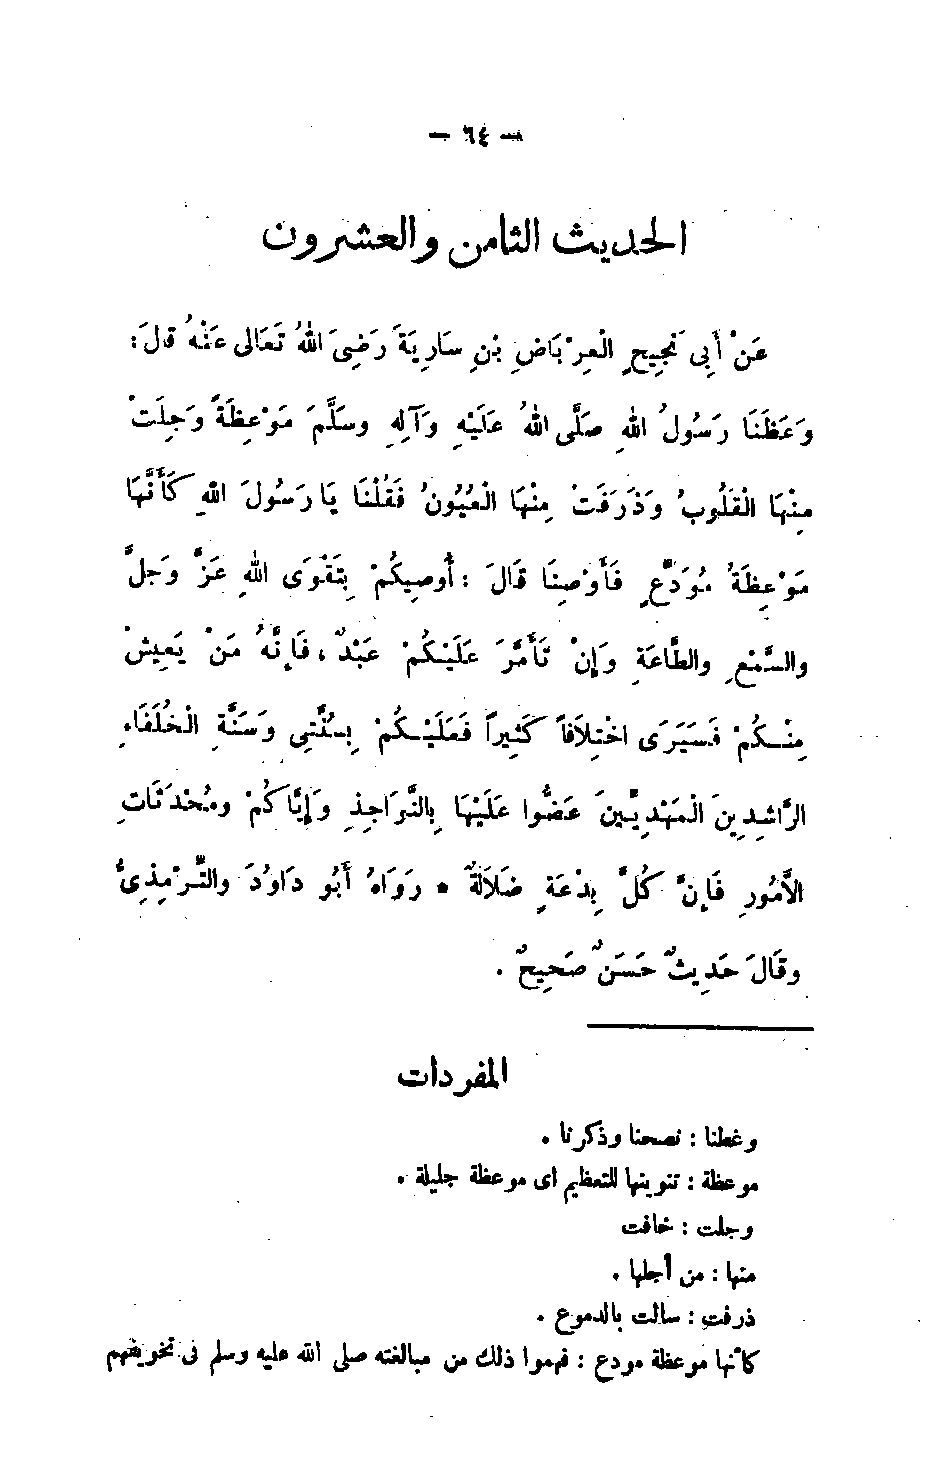 — ٦٤ —
الحديث الثامن والعشرون
عَنْ أَبِى نَجِيحٍ الْعِرْبَاضِ بْنِ سَارِيَةَ رَضِىَ اللهُ تَعَالى عَنْهُ قالَ :
وَعَظَنَا رَسُولُ اللهِ صَلَّى اللهُ عَلَيْهِ وَآلِهِ وسَلَّمَ مَوْعِظَةً وَجِلَتْ
مِنْهَا الْقُلُوبُ وَذَرَفَتْ مِنْهَا الْعُيُونُ فَقُلْنَا يَا رَسُولَ اللهِ كَأَنَّهَا
مَوْعِظَةُ مُوَدِّعٍ فَأَوْصِنَا قَالَ : أُوصِيكُمْ بِتَقْوَى اللهِ عَزَّ وَجلَّ
والسَّمْعِ والطَّاعَةِ وَإِنْ تَأَمَّرَ عَلَيْكُمْ عَبْدٌ ، فَإِنَّهُ مَنْ يَعِيشْ
مِنْكُمْ فَسَيَرَى اخْتِلَافاً كَثِيراً فَعَلَيْكُمْ بِسُنَّتِى وَسَنَّةِ الْخُلَفَاءِ
الرَّاشِدِينَ الْمَهْدِيِّينَ عَضُّوا عَلَيْهَا بِالنَّوَاجِذِ وَإِيَّاكُمْ ومُحْدَثَاتِ
الأُمُورِ فَإِنَّ كُلَّ بِدْعَةٍ ضَلَالَةٌ * رَوَاهُ أَبُو دَاوُدَ والتِّرْمِذِىُّ
وقَالَ حَدِيثٌ حَسَنٌ صَحِيحٌ .
المفردات
وعظنا : نصحنا وذكرنا .
موعظة : تنوينها للتعظيم اى موعظة جليلة .
وجلت : خافت
منها : من أجلها .
ذرفت : سالت بالدموع .
كأنها موعظة مودع : فهموا ذلك من مبالغته صلى الله عليه وسلم فى تخويفهم